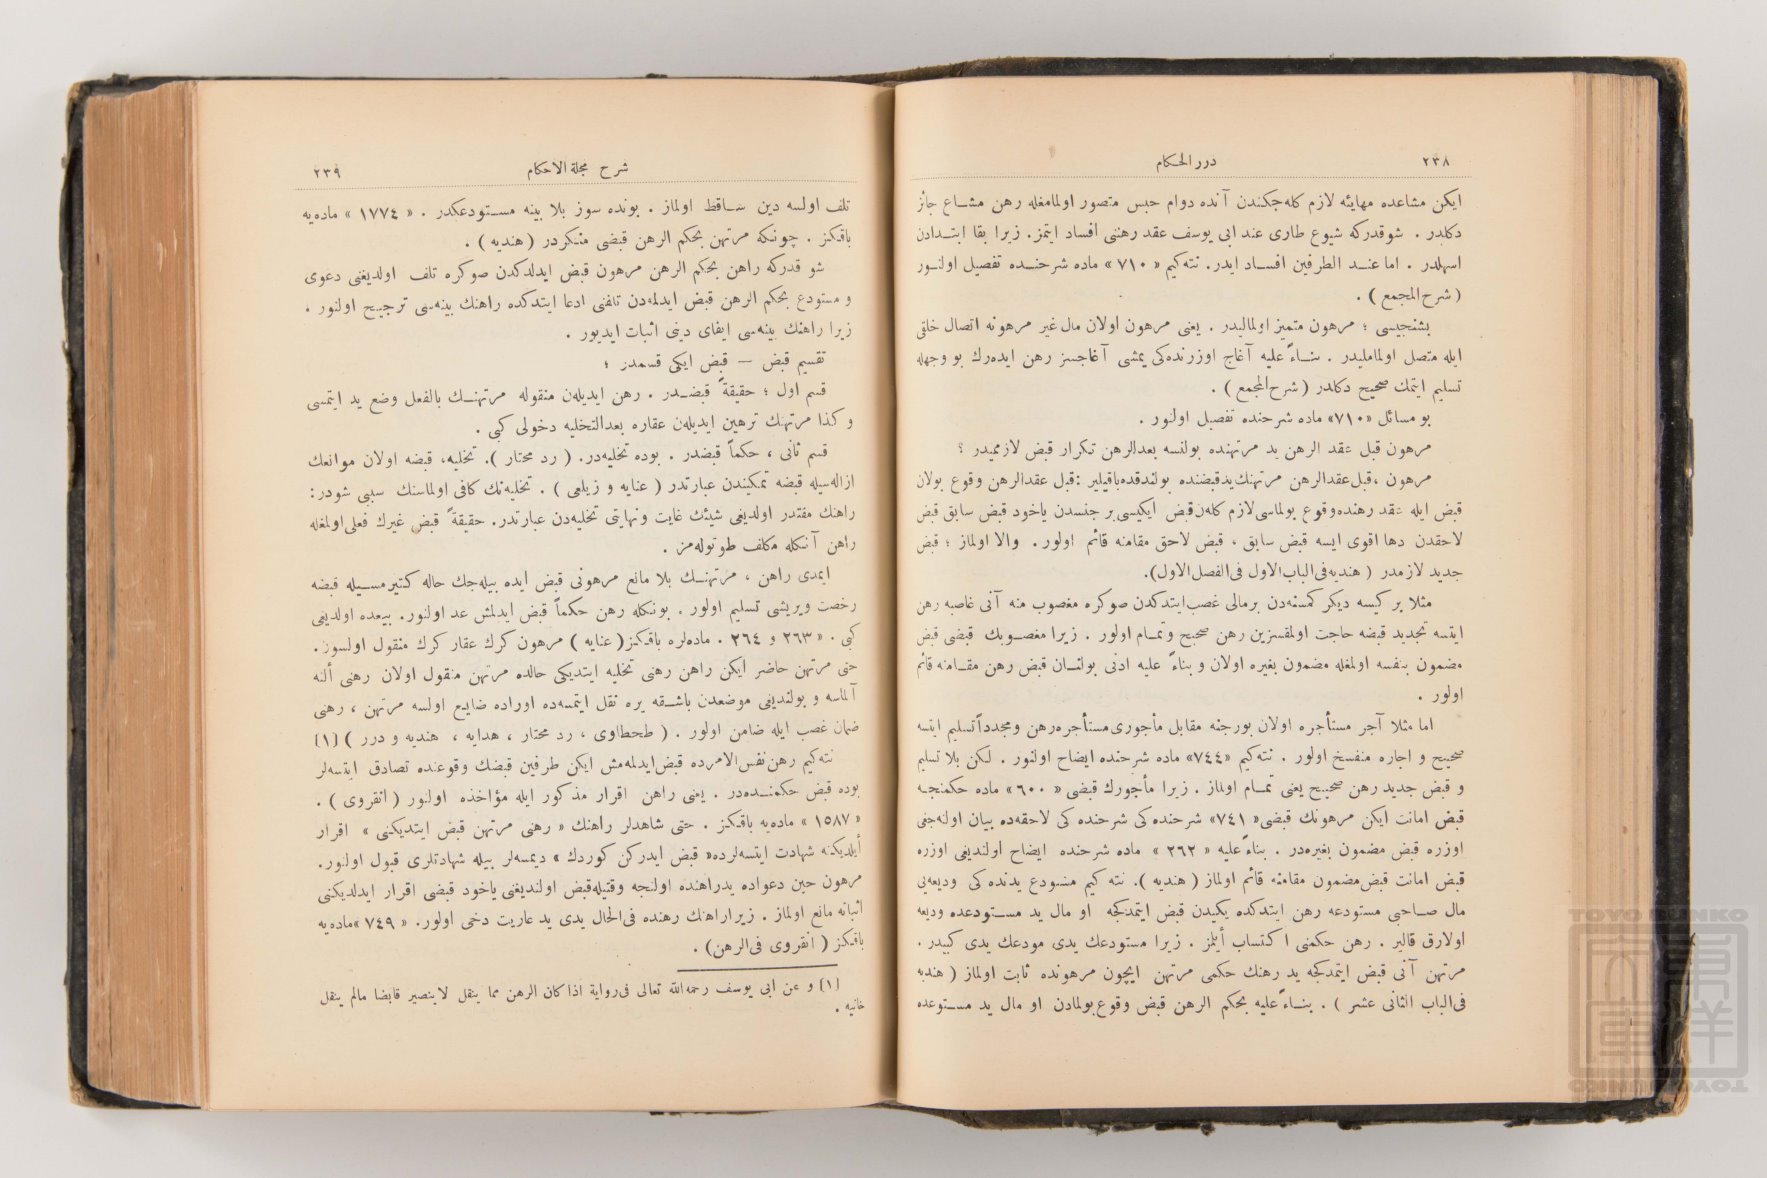 ٢٣٨
درر الحكام
ايكن مشاعده مهايئه لازم كله‌جكندن آنده دوام حبس متصور اولمامغله رهن مشاع جائز
دكلدر . شوقدركه شيوع طارى عند ابى يوسف عقد رهنى افساد ايتمز. زيرا بقا ابتدادن
اسهلدر . اما عند الطرفين افساد ايدر. نته‌كيم «٧١٠» ماده شرحنده تفصيل اولنور
( شرح المجمع ) .
بشنجيسى ؛ مرهون متميز اولماليدر . يعنى مرهون اولان مال غير مرهونه اتصال خلقى
ايله متصل اولمامليدر . بناءً عليه آغاج اوزرنده‌كى يمشى آغاجسز رهن ايده‌رك بو وجهله
تسليم ايتمك صحيح دكلدر ( شرح المجمع ) .
بو مسائل «٧١٠» ماده شرحنده تفصيل اولنور .
مرهون قبل عقد الرهن يد مرتهنده بولنسه بعدالرهن تكرار قبض لازمميدر ؟
مرهون ،قبل عقدالرهن مرتهنك يد قبضنده بولندقده باقيلير :قبل عقدالرهن وقوع بولان
قبض ايله عقد رهنده وقوع بولماسى لازم كلن قبض ايكيسى بر جنسدن ياخود قبض سابق قبض
لاحقدن دها اقوى ايسه قبض سابق ، قبض لاحق مقامنه قائم اولور . والا اولماز ؛ قبض
جديد لازمدر ( هنديه فى الباب الاول فى الفصل الاول).
مثلا بر كيسه ديكر كمسنه‌دن بر مالى غصب ايتدكدن صوكره مغصوب منه آنى غاصبه رهن
ايتسه تجديد قبضه حاجت اولمقسزين رهن صحيح وتمام اولور . زيرا مغصوبك قبضى قبض
مضمون بنفسه اولمغله مضمون بغيره اولان و بناءً عليه ادنى بولنان قبض رهن مقامنه قائم
اولور .
اما مثلا آجر مستأجره اولان بورجنه مقابل مأجورى مستأجره رهن ومجدداً تسليم ايتسه
صحيح و اجاره منفسخ اولور . نته‌كيم «٧٤٤» ماده شرحنده ايضاح اولنور . لكن بلا تسليم
و قبض جديد رهن صحيح يعنى تمام اولماز . زيرا مأجورك قبضى « ٦٠٠ » ماده حكمنجه
قبض امانت ايكن مرهونك قبضى« ٧٤١» شرحنده كى شرحنده كى لاحقه‌ده بيان اولنه‌جغى
اوزره قبض مضمون بغيره‌در . بناءً عليه « ٢٦٢ » ماده شرحنده ايضاح اولنديغى اوزره
قبض امانت قبض مضمون مقامنه قائم اولماز ( هنديه ). نته كيم مستودع يدنده كى وديعه‌يى
مال صاحبى مستودعه رهن ايتدكده يكيدن قبض ايتمدكجه او مال يد مستودعده وديعه
اولارق قالير . رهن حكمنى اكتساب أيلمز . زيرا مستودعك يدى مودعك يدى كبيدر .
مرتهن آنى قبض ايتمدكجه يد رهنك حكمى مرتهن ايچون مرهونده ثابت اولماز ( هنديه
فى الباب الثانى عشر ) . بناءً عليه بحكم الرهن قبض وقوع بولمادن او مال يد مستودعده
شرح مجلة الاحكام
٢٣٩
تلف اولسه دين ساقط اولماز . بونده سوز بلا بينه مستودعكدر . « ١٧٧٤ » ماده‌يه
باقكز . چونكه مرتهن بحكم الرهن قبضى منكردر ( هنديه ) .
شو قدركه راهن بحكم الرهن مرهون قبض ايدلدكدن صوكره تلف اولديغنى دعوى
و مستودع بحكم الرهن قبض ايدلمه‌دن تلفنى ادعا ايتدكده راهنك بينه‌سى ترجيح اولنور .
زيرا راهنك بينه‌سى ايفاى دينى اثبات ايديور .
تقسيم قبض — قبض ايكى قسمدر ؛
قسم اول ؛ حقيقةً قبضدر . رهن ايديلن منقوله مرتهنك بالفعل وضع يد ايتمسى
و كذا مرتهنك ترهين ايديلن عقاره بعدالتخليه دخولى كبى .
قسم ثانى ، حكماً قبضدر . بوده تخليه‌در. ( رد محتار ). تخليه، قبضه اولان موانعك
ازاله‌سيله قبضه تمكيندن عبارتدر ( عنايه و زيلعى ) . تخليه‌نك كافى اولماسنك سببى شودر:
راهنك مقتدر اولديغى شيئك غايت ونهايتى تخليه‌دن عبارتدر. حقيقةً قبض غيرك فعلى اولمغله
راهن آنكله مكلف طوتوله‌مز .
ايمدى راهن ، مرتهنك بلا مانع مرهونى قبض ايده بيله‌جك حاله كتيرمسيله قبضه
رخصت ويريشى تسليم اولور . بونكله رهن حكماً قبض ايدلمش عد اولنور. بيعده اولديغى
كبى . « ٢٦٣ و ٢٦٤ . ماده‌لره باقكز( عنايه ) مرهون كرك عقار كرك منقول اولسون.
حتى مرتهن حاضر ايكن راهن رهنى تخليه ايتديكى حالده مرتهن منقول اولان رهنى ألنه
آلماسه و بولنديغى موضعدن باشقه يره نقل ايتمسه‌ده اوراده ضايع اولسه مرتهن ، رهنى
ضمان غصب ايله ضامن اولور . ( طحطاوى ، رد محتار ، هدايه ، هنديه و درر ) [١]
نته‌كيم رهن نفس الامرده قبض ايدلمه‌مش ايكن طرفين قبضك وقوعنده تصادق ايتسه‌لر
بوده قبض حكمنده‌در . يعنى راهن اقرار مذكور ايله مؤاخذه اولنور ( انقروى ) .
« ١٥٨٧ » ماده‌يه باقكز . حتى شاهدلر راهنك « رهنى مرتهن قبض ايتديكنى » اقرار
أيلديكنه شهادت ايتسه‌لرده« قبض ايدركن كوردك » ديمسه‌لر بيله شهادتلرى قبول اولنور.
مرهون حين دعواده يد راهنده اولنجه وقتيله قبض اولنديغنى ياخود قبضى اقرار ايدلديكنى
اثباته مانع اولماز . زيرا راهنك رهنده فى الحال يدى يد عاريت دخى اولور. « ٧٤٩ »ماده‌يه
باقكز ( انقروى فى الرهن) .
[١] و عن ابى يوسف رحمه الله تعالى فى رواية اذا كان الرهن مما ينقل لا يصير قابضا مالم ينقل
خانيه .
TOYO BUNKO